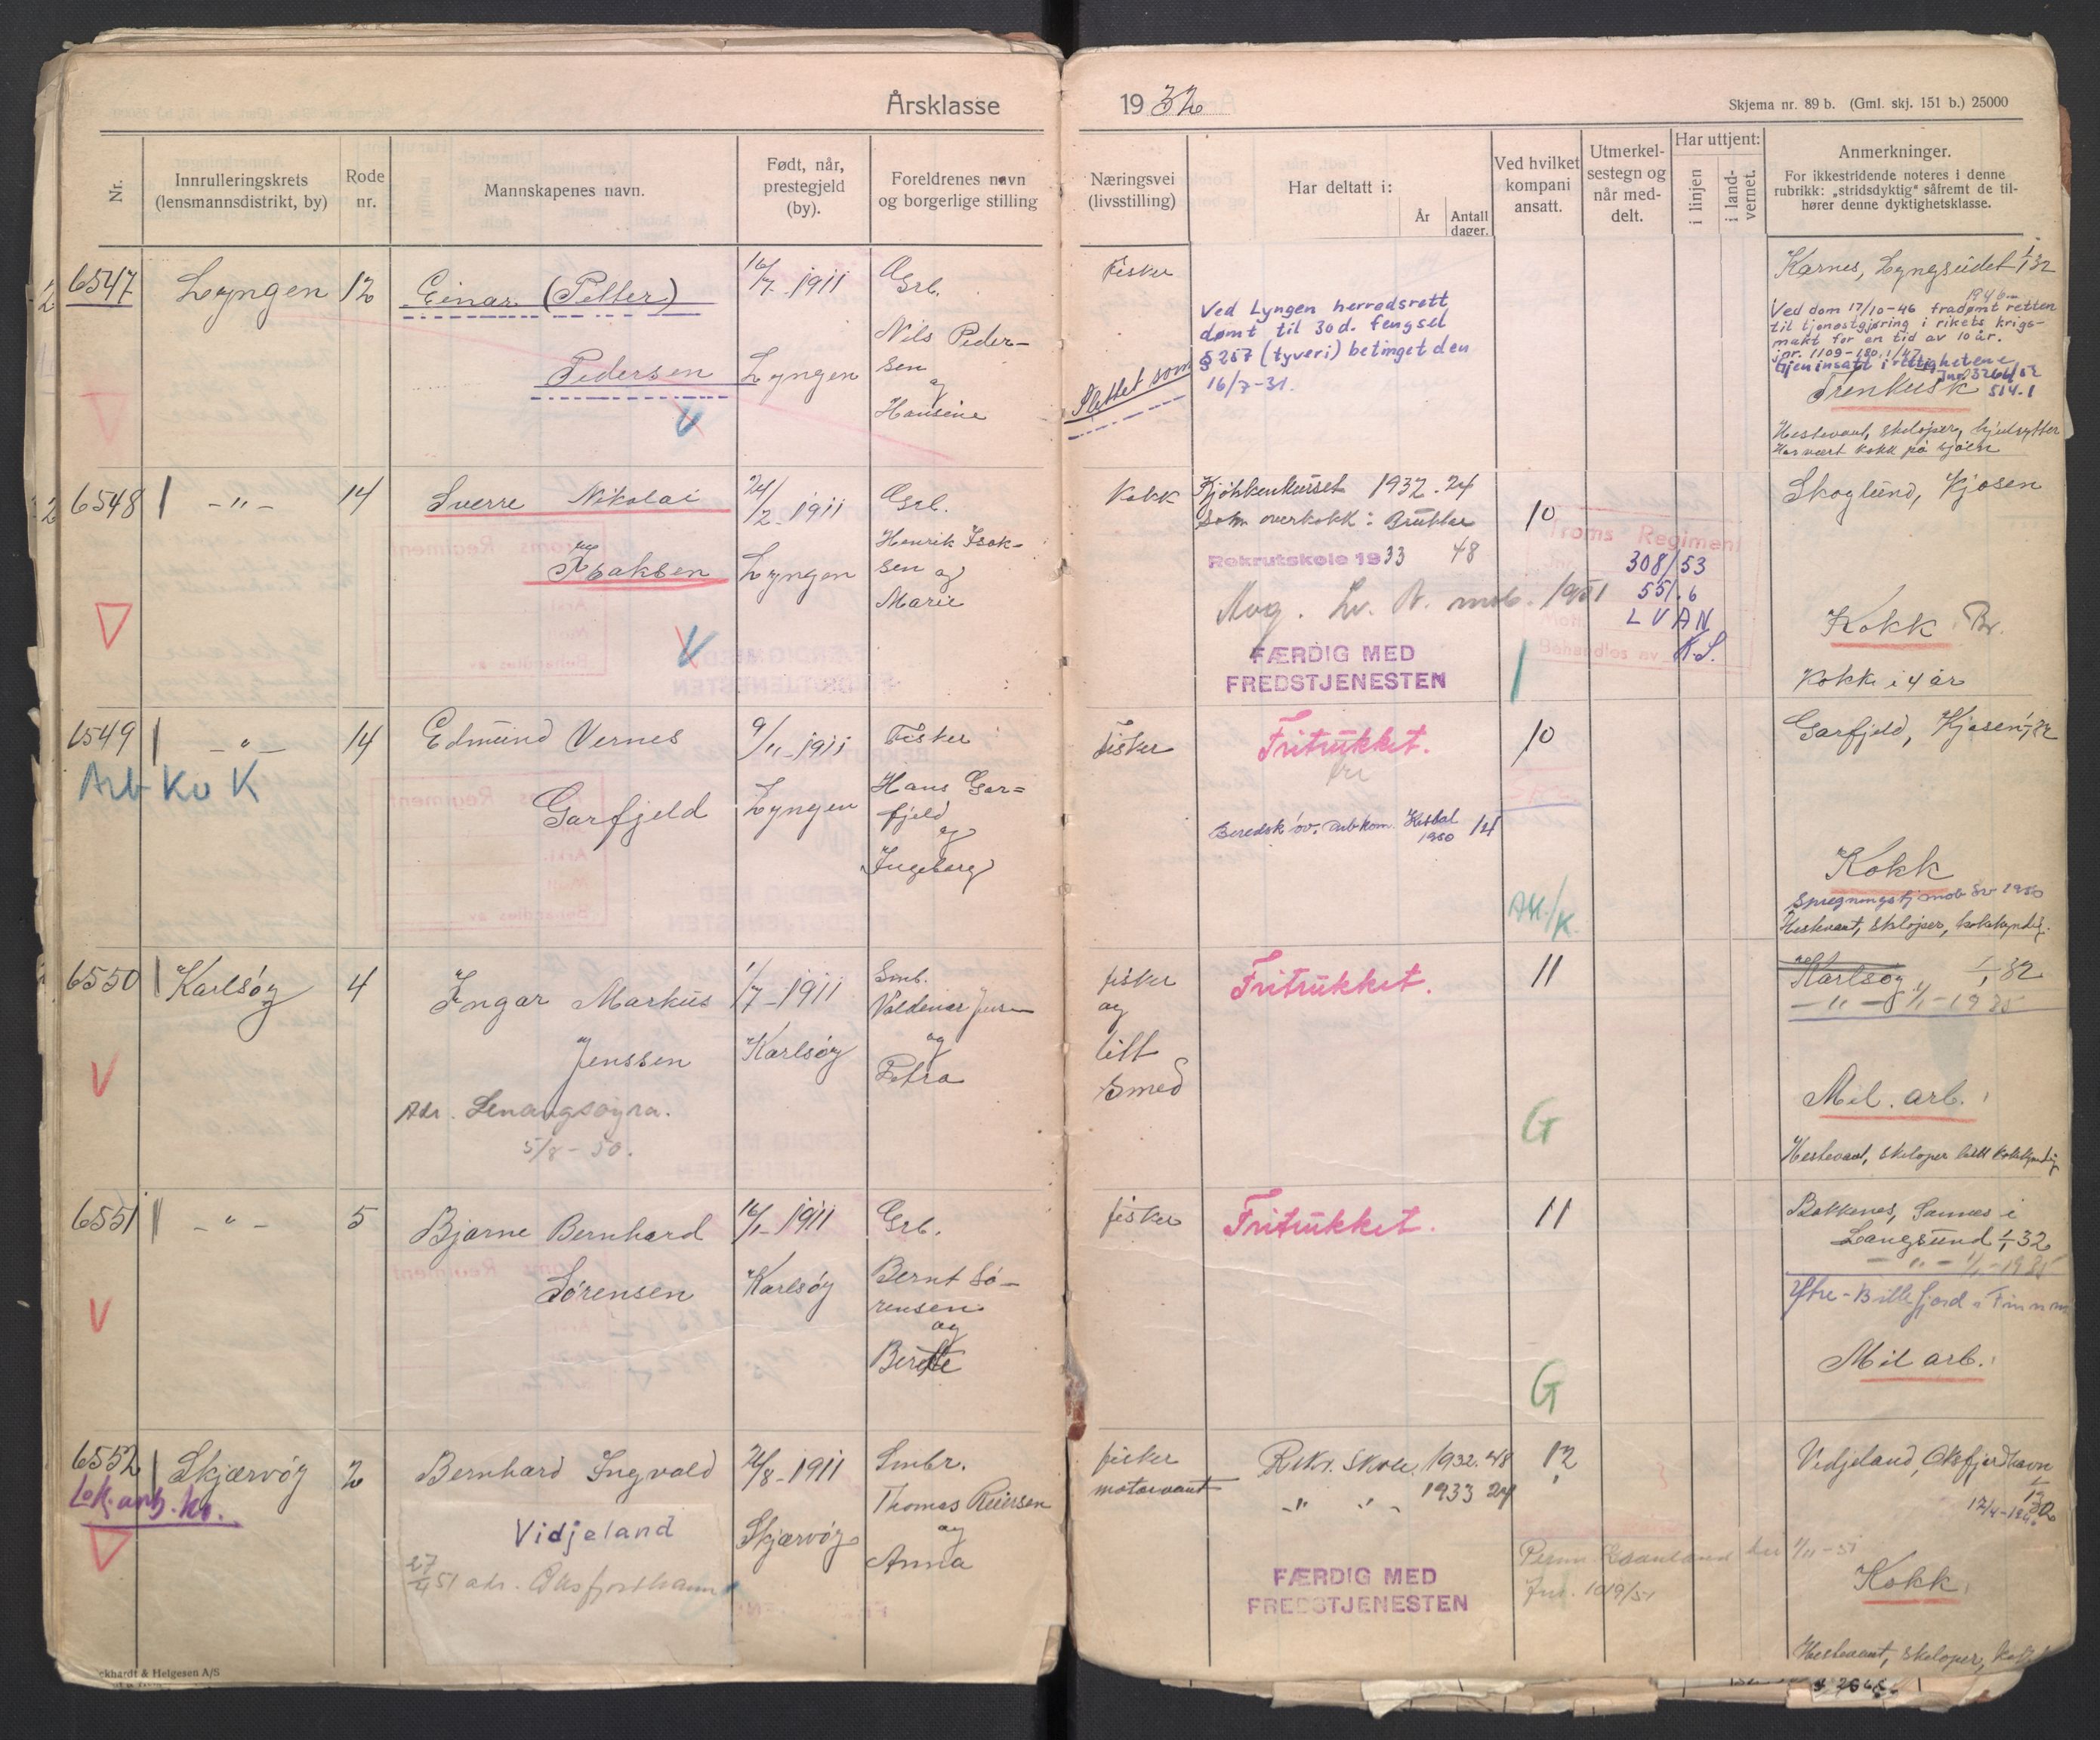 Årsklasse 1932
Skjema nr. 89 b. (Gml. skj. 151 b.) 25000
Nr.
Innrulleringskrets
(lensmannsdistrikt, by)
Rode
nr.
Mannskapenes navn.
Født, når,
prestegjeld
(by).
Foreldrenes navn
og borgerlige stilling
Næringsvei
(livsstilling)
Har deltatt i:
År
Antall
dager.
Ved hvilket
kompani
ansatt.
Utmerkel-
sestegn og
når med-
delt.
Har uttjent:
i linjen
i land-
vernet.
Anmerkninger.
For ikkestridende noteres i denne
rubrikk: „stridsdyktig" såfremt de til-
hører denne dyktighetsklasse.
6547
Lyngen
12
Einar (Petter)
Pedersen
V
16/7-1911
Lyngen
Grb.
Nils Peder-
sen
og
Hansine
Fisker
Slettet som
Ved Lyngen herredsrett
dømt til 30 d. fengsel
§ 257 (tyveri) betinget den
16/7-31.
Karnes, Lyngseidet 1/1 32
Ved dom 17/10-46 fradømt retten
til tjenestgjøring i rikets krigs-
makt for en tid av 10 år.
jnr. 1109-180.1/47
Gjeninsatt i rettighetene
Jnr 3266/52
514.1
Trenkusk
Hestevant, skiløper, hjulrytter
Har vært kokk på sjøen
6548
- " -
14
Sverre Nikolai
Isaksen
V
24/2-1911
Lyngen
Grb.
Henrik Isak-
sen og
Marie
Kokk
Kjøkkenkurset 1932. 24
Som overkokk: Brukbar
Rekrutskole 1933 48
Mog. Lv. Bn. mob. 1951
FÆRDIG MED
FREDSTJENESTEN
10
Troms Regiment
308/53
551.6
LVAN
Behandles av K.S.
Skoglund, Kjosen
Kokk Br.
Kokk i 4 år
6549
Arb Ko K
- " -
14
Edmund Vernes
Garfjeld
9/11-1911
Lyngen
Fisker
Hans Gar=
fjeld
og
Ingeborg
Fisker
Fritrukket.
Beredsk. øv. Arb kom. 1950 14
10
AK/K.
Garfjeld, Kjosen 1/1 32
Kokk
Hestevant, skiløper, kokkyndig.
6550
Karlsøy
4
Ingar Markus
Jenssen
Adr. Lenangsøyra.
5/8-50.
1/7-1911
Karlsøy
Smb.
Valdemar Jensen
og
Petra
fisker
og
litt
smed
Fritrukket.
11
G
Karlsøy 1/1-32
- " - 1/1-1935
Mil. arb.
Hestevant, skiløper litt kokkyndig
6551
- " -
5
Bjarne Bernhard
Sørensen
16/1-1911
Karlsøy
Grb.
Bernt Sø-
rensen
og
Berette
fisker
Fritrukket.
11
G
Bakkenes, Sannes i
Langsund 1/1 32
- " - 1/1-1935
Ytre-Billefjord i Finnm
Mil arb.
6552
Lok. arb. ko.
Skjærvøy
2
Bernhard Ingvald
Vidjeland
27/4 51 adr. Oksfjordhamn
21/8-1911
Skjærvøy
Smbr.
Thomas Reiersen
og
Anna
fisker
motorvant
Rekr. Skole 1932. 48
- " - " - 1933 24
FÆRDIG MED
FREDSTJENESTEN
12
Jnr. 1019/51
Vidjeland, Oksfjordhavn
1/1 32
Kokk.
Hestevant, skiløper,
khardt & Helgesen A/S